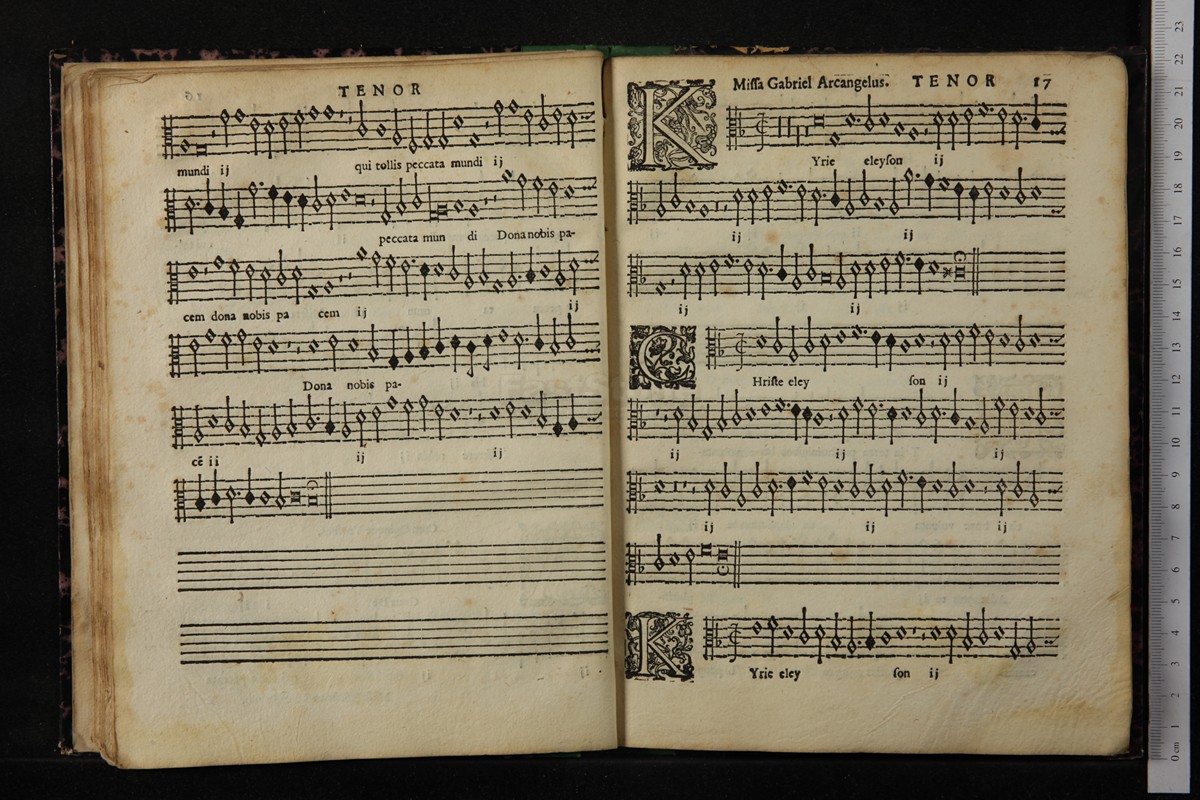 TENOR
mundi ij qui tollis peccata mundi ij
peccata mun di Dona nobis pa-
cem dona nobis pa cem ij ij
Dona nobis pa-
cē ij ij ij
Missa Gabriel Arcangelus. TENOR 17
K Yrie eleyson ij
ij ij
ij ij
C Hriste eley son ij
ij ij ij
ij ij ij
K Yrie eley son ij
23
22
21
20
19
18
17
16
15
14
13
12
11
10
9
8
7
6
5
4
3
2
1
0 cm